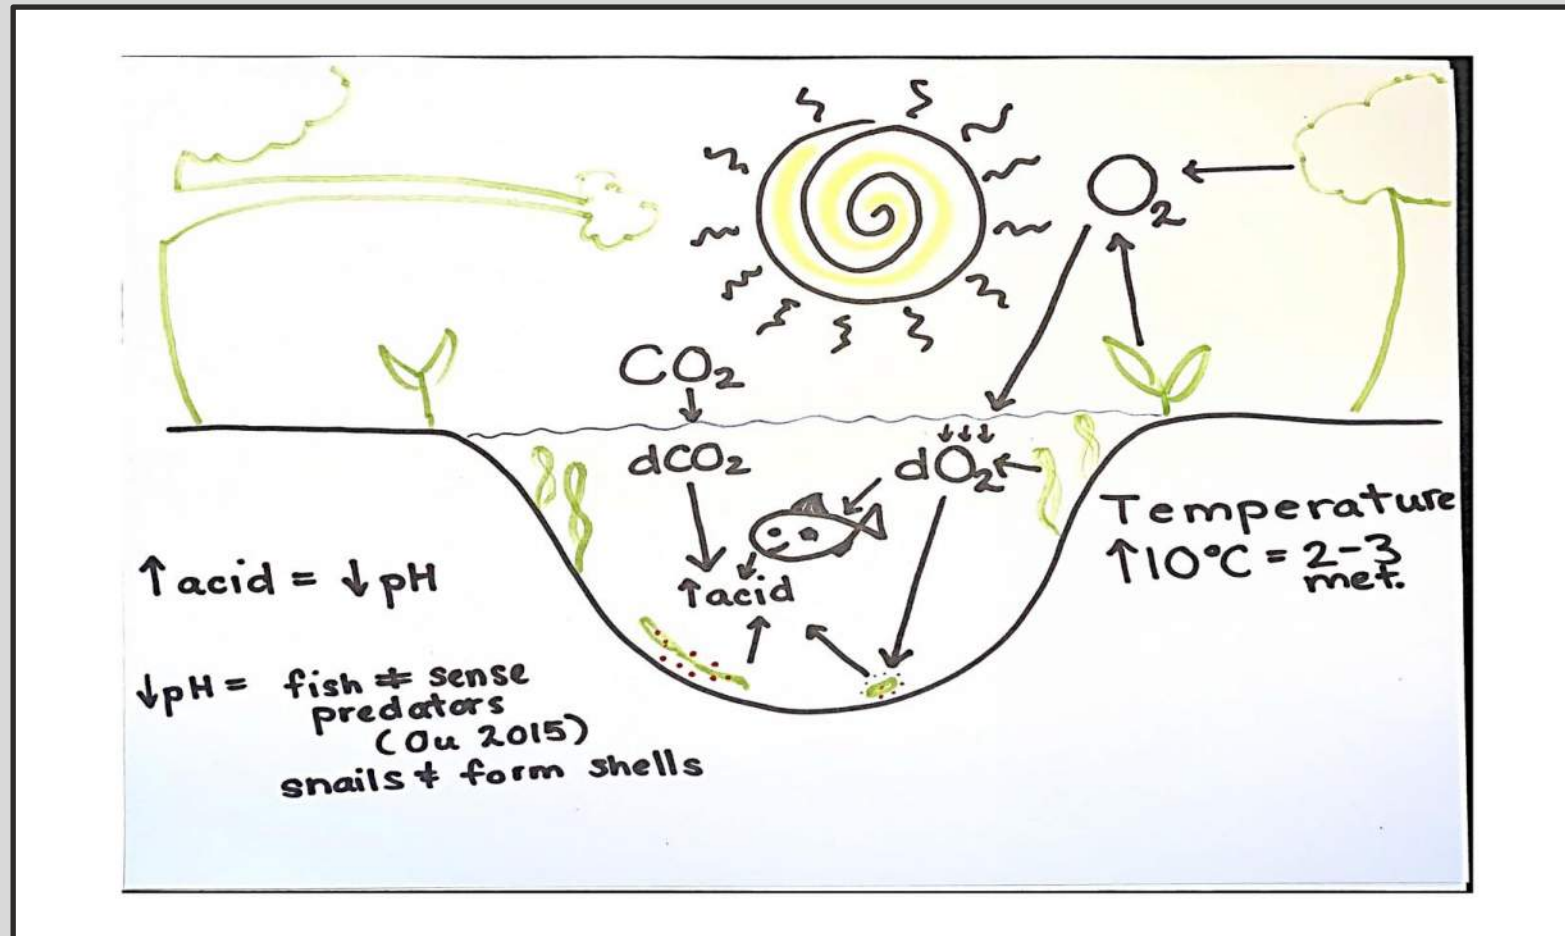 O₂
CO₂
dCO₂
dO₂
↑acid
Temperature
↑10°C = 2-3
met.
↑acid = ↓pH
↓pH = fish ≠ sense
predators
(Ou 2015)
snails ≠ form shells